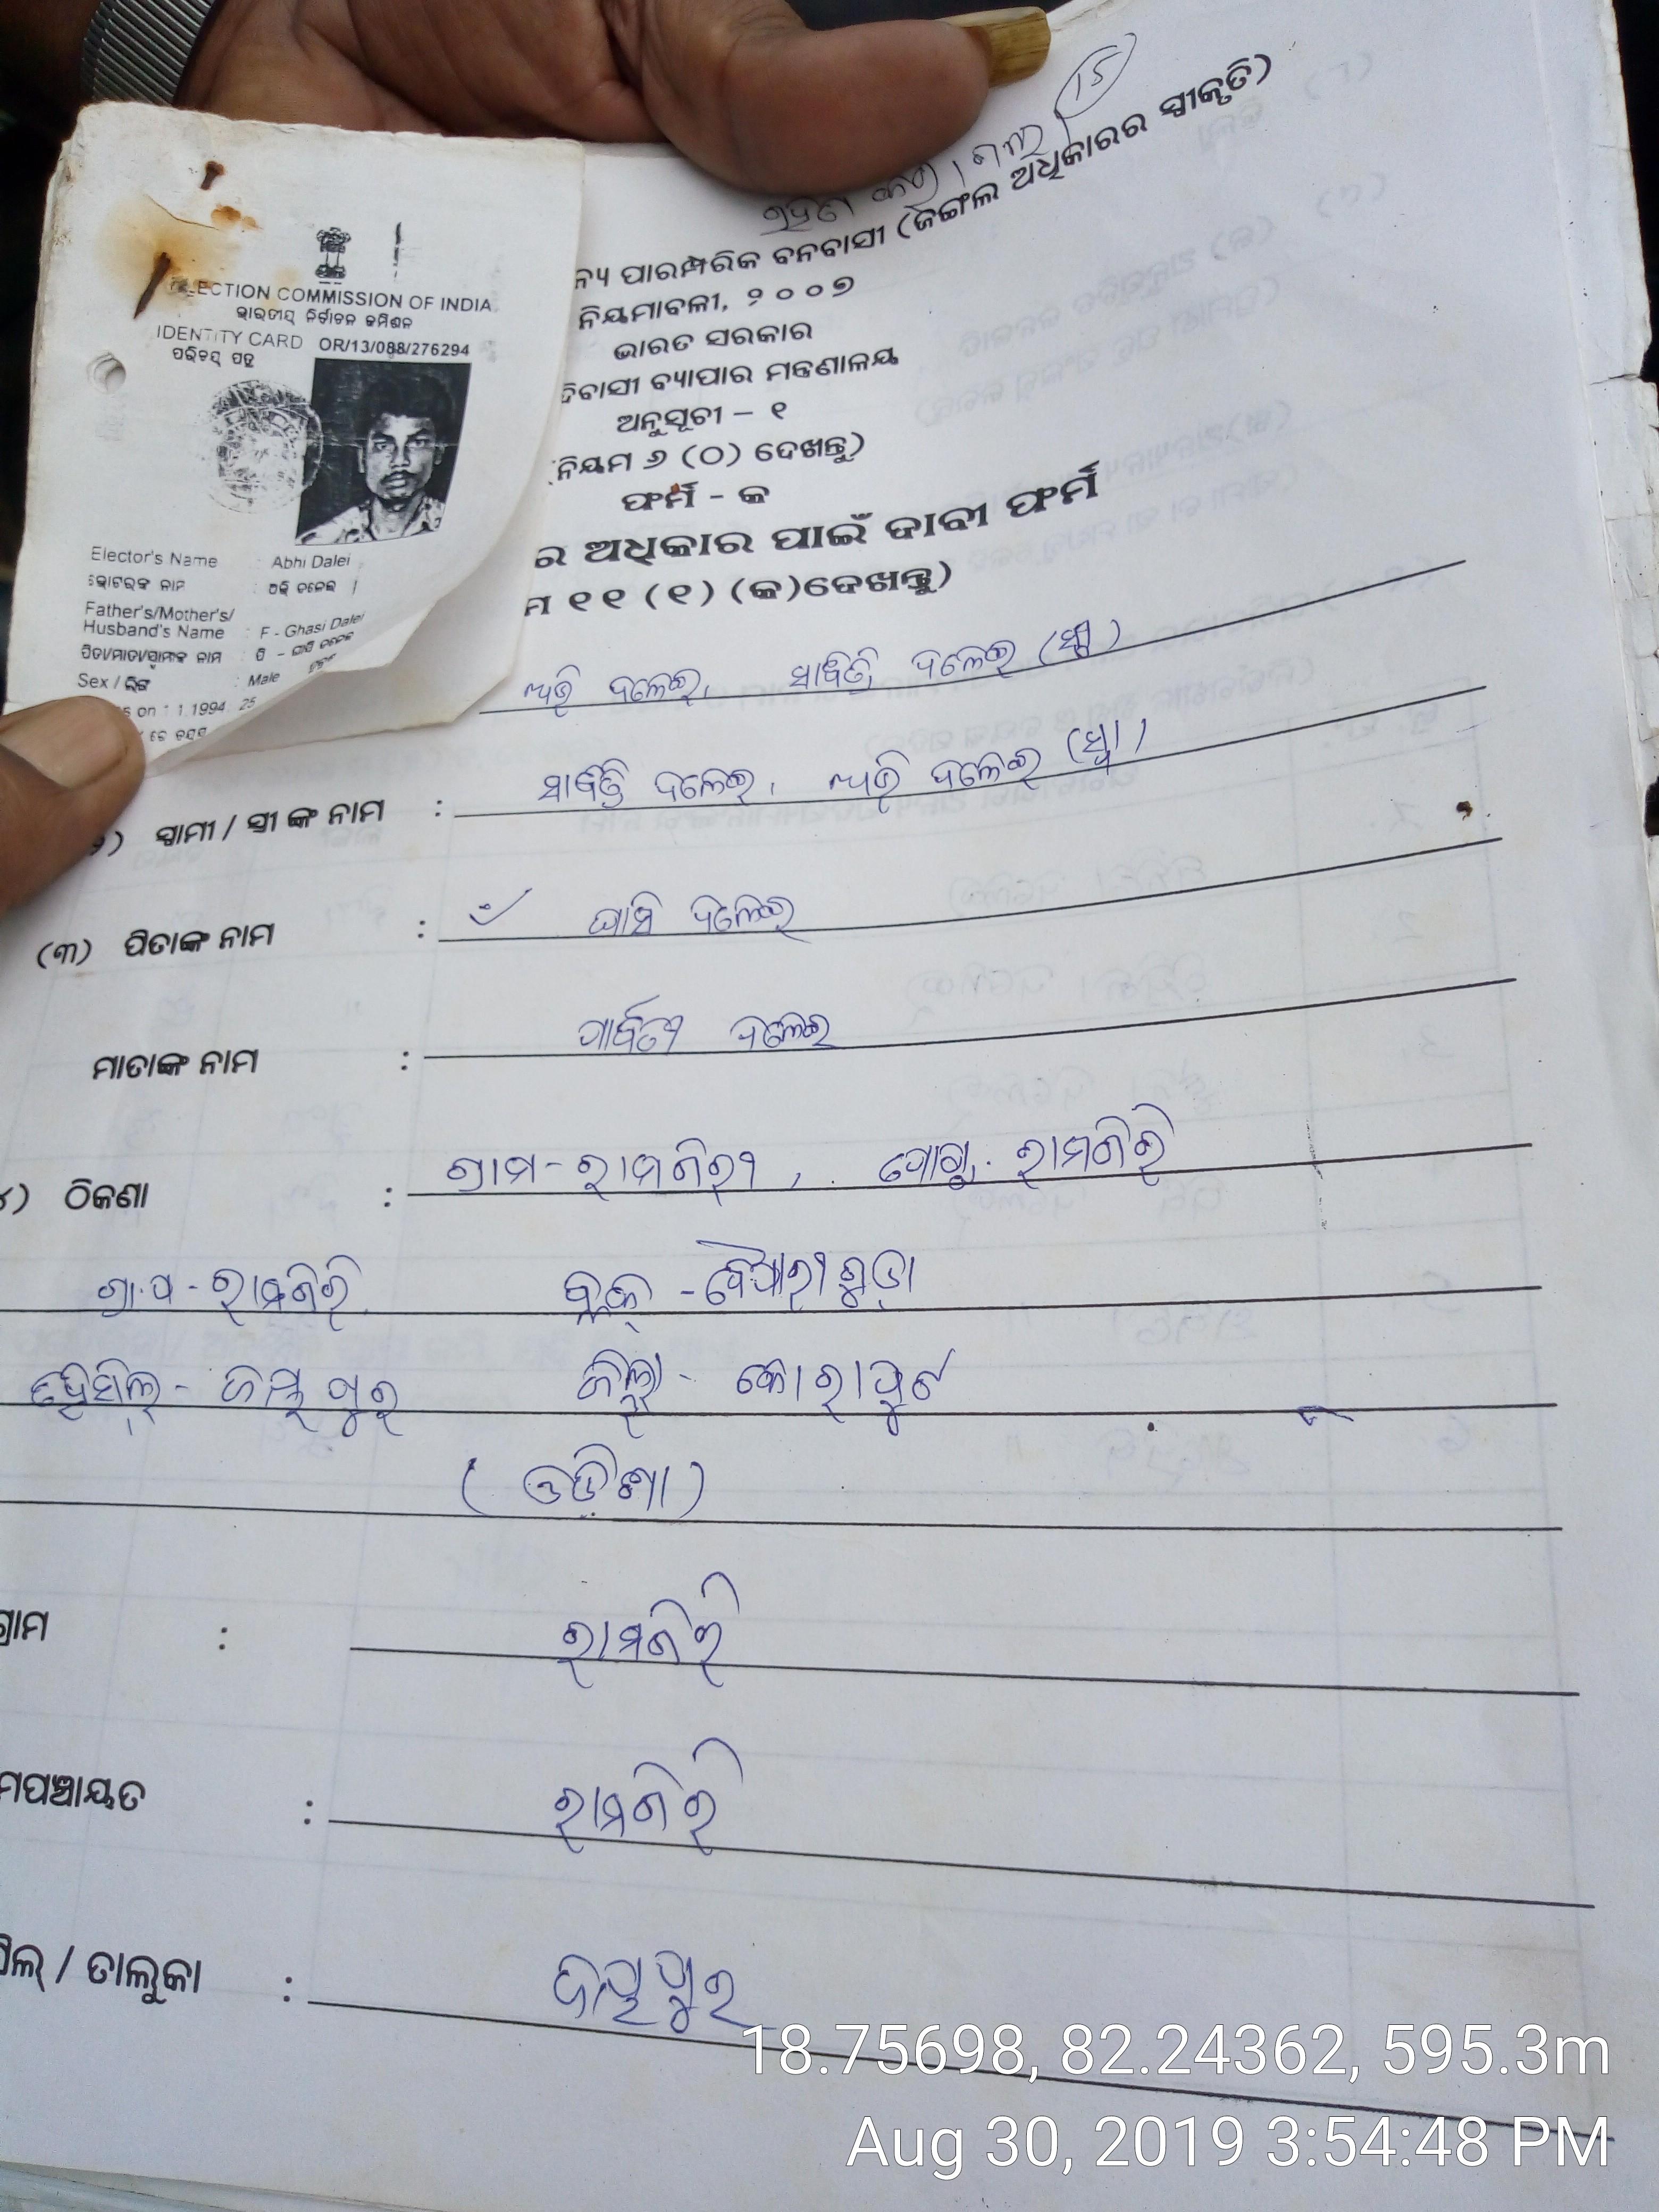 15
ଗ୍ରହଣ କରା ଗଲା
ନ୍ୟ ପାରମ୍ପରିକ ବନବାସୀ (ଜଙ୍ଗଲ ଅଧିକାରର ସ୍ୱୀକୃତି)
ନିୟମାବଳୀ, ୨୦୦୭
ଭାରତ ସରକାର
ଦିବାସୀ ବ୍ୟାପାର ମନ୍ତ୍ରଣାଳୟ
ଅନୁସୂଚୀ – ୧
ନିୟମ ୬ (ଠ) ଦେଖନ୍ତୁ)
ଫର୍ମ - କ
ର ଅଧିକାର ପାଇଁ ଦାବୀ ଫର୍ମ
ମ ୧୧ (୧) (କ)ଦେଖନ୍ତୁ)
ELECTION COMMISSION OF INDIA
ଭାରତୀୟ ନିର୍ବାଚନ କମିଶନ
IDENTITY CARD OR/13/088/276294
ପରିଚୟ ପତ୍ର
Elector's Name : Abhi Dalei
ଭୋଟରଙ୍କ ନାମ : ଅଭି ଦଳେଇ
Father's/Mother's/
Husband's Name : F - Ghasi Dalei
ପିତା/ମାତା/ସ୍ୱାମୀଙ୍କ ନାମ : ପି - ଘାସି ଦଳେଇ
Sex / ଲିଙ୍ଗ : Male
s on 1.1.1994 25
ଅଭି ଦଳେଇ, ସାବିତ୍ରି ଦଳେଇ (ସ୍ତ୍ରୀ)
ସ୍ୱାମୀ / ସ୍ତ୍ରୀ ଙ୍କ ନାମ : ସାବିତ୍ରି ଦଳେଇ, ଅଭି ଦଳେଇ (ସ୍ୱା)
(୩) ପିତାଙ୍କ ନାମ : ଘାସି ଦଳେଇ
ମାତାଙ୍କ ନାମ : ପାର୍ବତୀ ଦଳେଇ
୪) ଠିକଣା : ଗ୍ରାମ-ରାମଗିରୀ, ପୋଷ୍ଟ-ରାମଗିରି
ଗ୍ରା.ପ - ରାମଗିରି ବ୍ଲକ୍ - ବୈପାରୀଗୁଡା
ତହସିଲ୍ - ଜୟପୁର ଜିଲ୍ଲା - କୋରାପୁଟ
(ଓଡ଼ିଶା)
ଗ୍ରାମ : ରାମଗିରି
ମପଞ୍ଚାୟତ : ରାମଗିରି
ସିଲ୍ / ତାଲୁକା : ଜୟପୁର
18.75698, 82.24362, 595.3m
Aug 30, 2019 3:54:48 PM